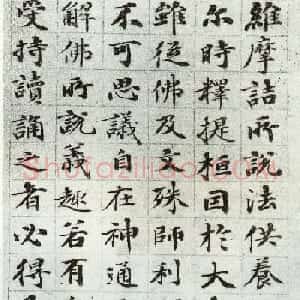 維摩詰所説法供養
尓時釋提桓囙於大
雖從佛及文殊師利
不可思議自在神通
解佛所説義趣若有
受持讀誦之者必得